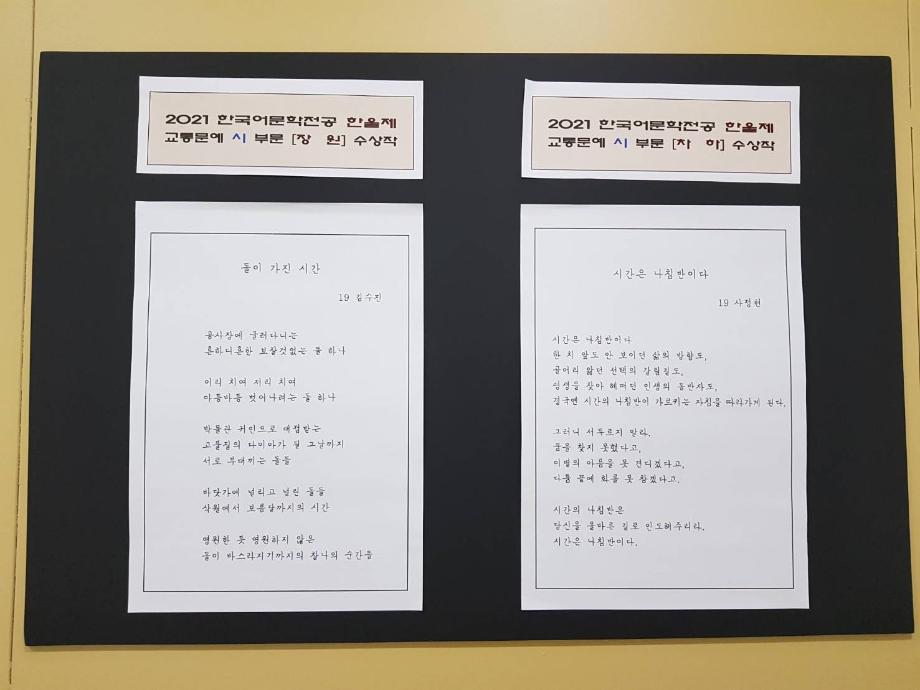 2021 한국어문학전공 한울제
교통문예 시 부문 [장 원] 수상작
돌이 가진 시간
19 김수진
공사장에 굴러다니는
흔하디흔한 보잘것없는 돌 하나
이리 치여 저리 치여
아등바등 벗어나려는 돌 하나
박물관 귀인으로 대접받는
고물질의 다이아가 될 그날까지
서로 부대끼는 돌들
바닷가에 널리고 널린 돌들
삭월에서 보름달까지의 시간
영원한 듯 영원하지 않은
돌이 바스라지기까지의 찰나의 순간들
2021 한국어문학전공 한울제
교통문예 시 부문 [차 하] 수상작
시간은 나침반이다
19 사정현
시간은 나침반이다
한 치 앞도 안 보이던 삶의 방향도,
골머리 앓던 선택의 갈림길도,
영생을 찾아 헤매던 인생의 동반자도,
결국엔 시간의 나침반이 가르키는 자침을 따라가게 된다.
그러니 서두르지 말라.
꿈을 찾지 못했다고,
이별의 아픔을 못 견디겠다고,
다툼 끝에 화를 못 참겠다고.
시간의 나침반은
당신을 올바른 길로 인도해주리라.
시간은 나침반이다.